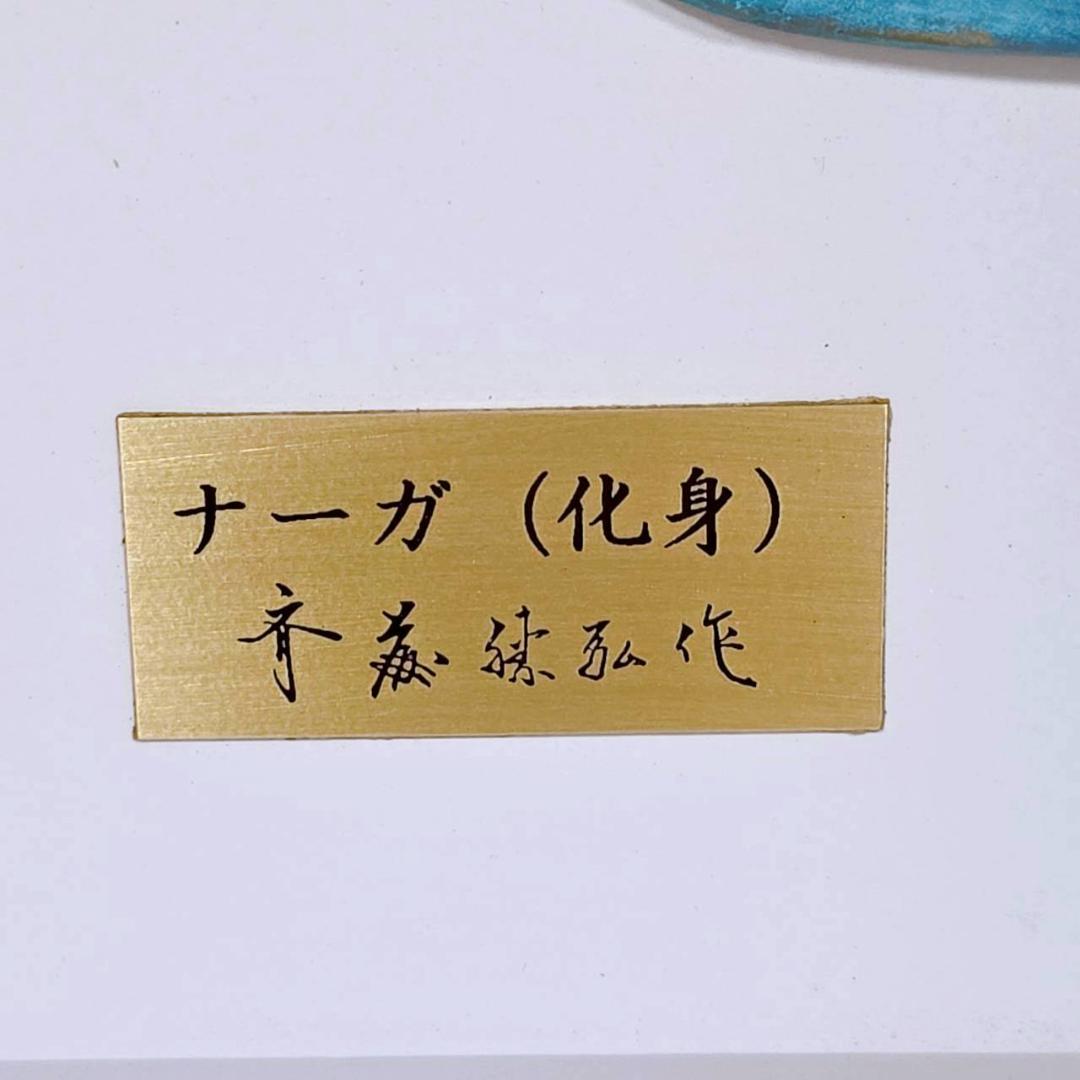 ナーガ（化身）
斉藤勝弘作